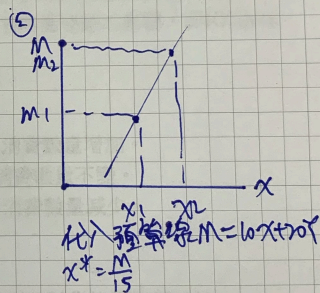 ②
M
M2
M1
X
X1 X2
代入預算線M=10X+20Y
X*=M/15